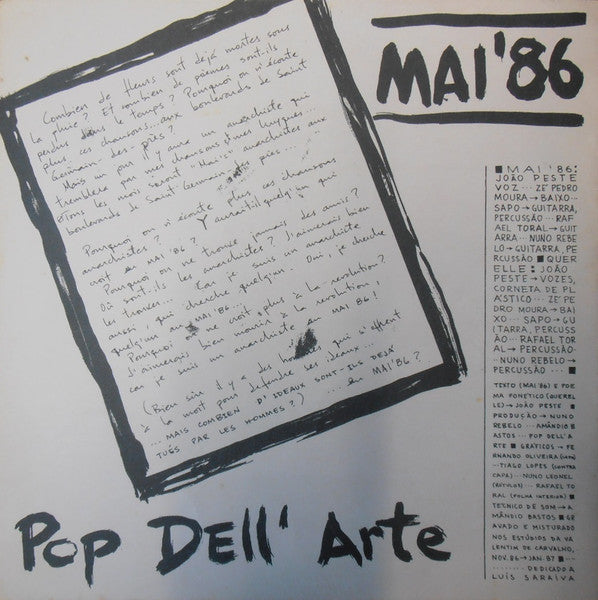 MAI '86
Combien de fleurs sont dejá mortes sous
la pluie? Et combien de poèmes sont-ils
perdus dans le temps? Pourquoi on n'écoute
plus ces chansons... aux boulevards de Saint
Germain-des-près?
Mais un jour il y aura un anarchiste qui
tremblera par mes chansons
et tous les mois seront "Mai"... anarchistes aux
boulevards de Saint Germain des près...
Pourquoi on n'écoute plus ces chansons
anarchistes? Y aurait-il quelqu'un qui
croit en MAI '86?
Pourquoi on ne trouve jamais des amis?
Où sont-ils les anarchistes? J'aimerais bien
les trouver... Car je suis un anarchiste
aussi, qui cherche quelqu'un. Oui, je cherche
quelqu'un au MAI '86...
Pourquoi on ne croit plus à la revolution?
J'aimerais bien mourir à la revolution,
car je suis un anarchiste en MAI 86!
(Bien sûr il y a des hommes qui s'offrent
à la mort pour defendre ses ideaux...
...MAIS COMBIEN D'IDEAUX SONT-ILS DEJÀ
TUÉS PAR LES HOMMES?) ... en MAI '86?
■ MAI '86:
JOÃO PESTE
VOZ... ZÉ PEDRO
MOURA→BAIXO...
SAPO→GUITARRA,
PERCUSSÃO...RAF
AEL TORAL→GUIT
ARRA...NUNO REBE
LO→GUITARRA, PE
RCUSSÃO ■ QUER
ELLE: JOÃO
PESTE→VOZES,
CORNETA DE PL
ÁSTICO...ZÉ PE
DRO MOURA→BAI
XO...SAPO→GU
ITARRA, PERCUSS
ÃO...RAFAEL TOR
AL→PERCUSSÃO
...NUNO REBELO→
PERCUSSÃO... ■
TEXTO (MAI '86) E POE
MA FONÉTICO (QUERE
LLE)→JOÃO PESTE ■
PRODUÇÃO→NUNO
REBELO...AMÂNDIO B
ASTOS...POP DELL'A
RTE ■ GRÁFICOS→FE
RNANDO OLIVEIRA
...TIAGO LOPES (CONTRA
CAPA)...NUNO LEONEL
(RÓTULOS)...RAFAEL TO
RAL (FOLHA INTERIOR) ■
TÉCNICO DE SOM→A
MÂNDIO BASTOS ■ GR
AVADO E MISTURADO
NOS ESTÚDIOS DA VA
LENTIM DE CARVALHO,
NOV. 86→JAN. 87 ■...
.........DEDICADO A
LUÍS SARAIVA
Pop Dell' Arte